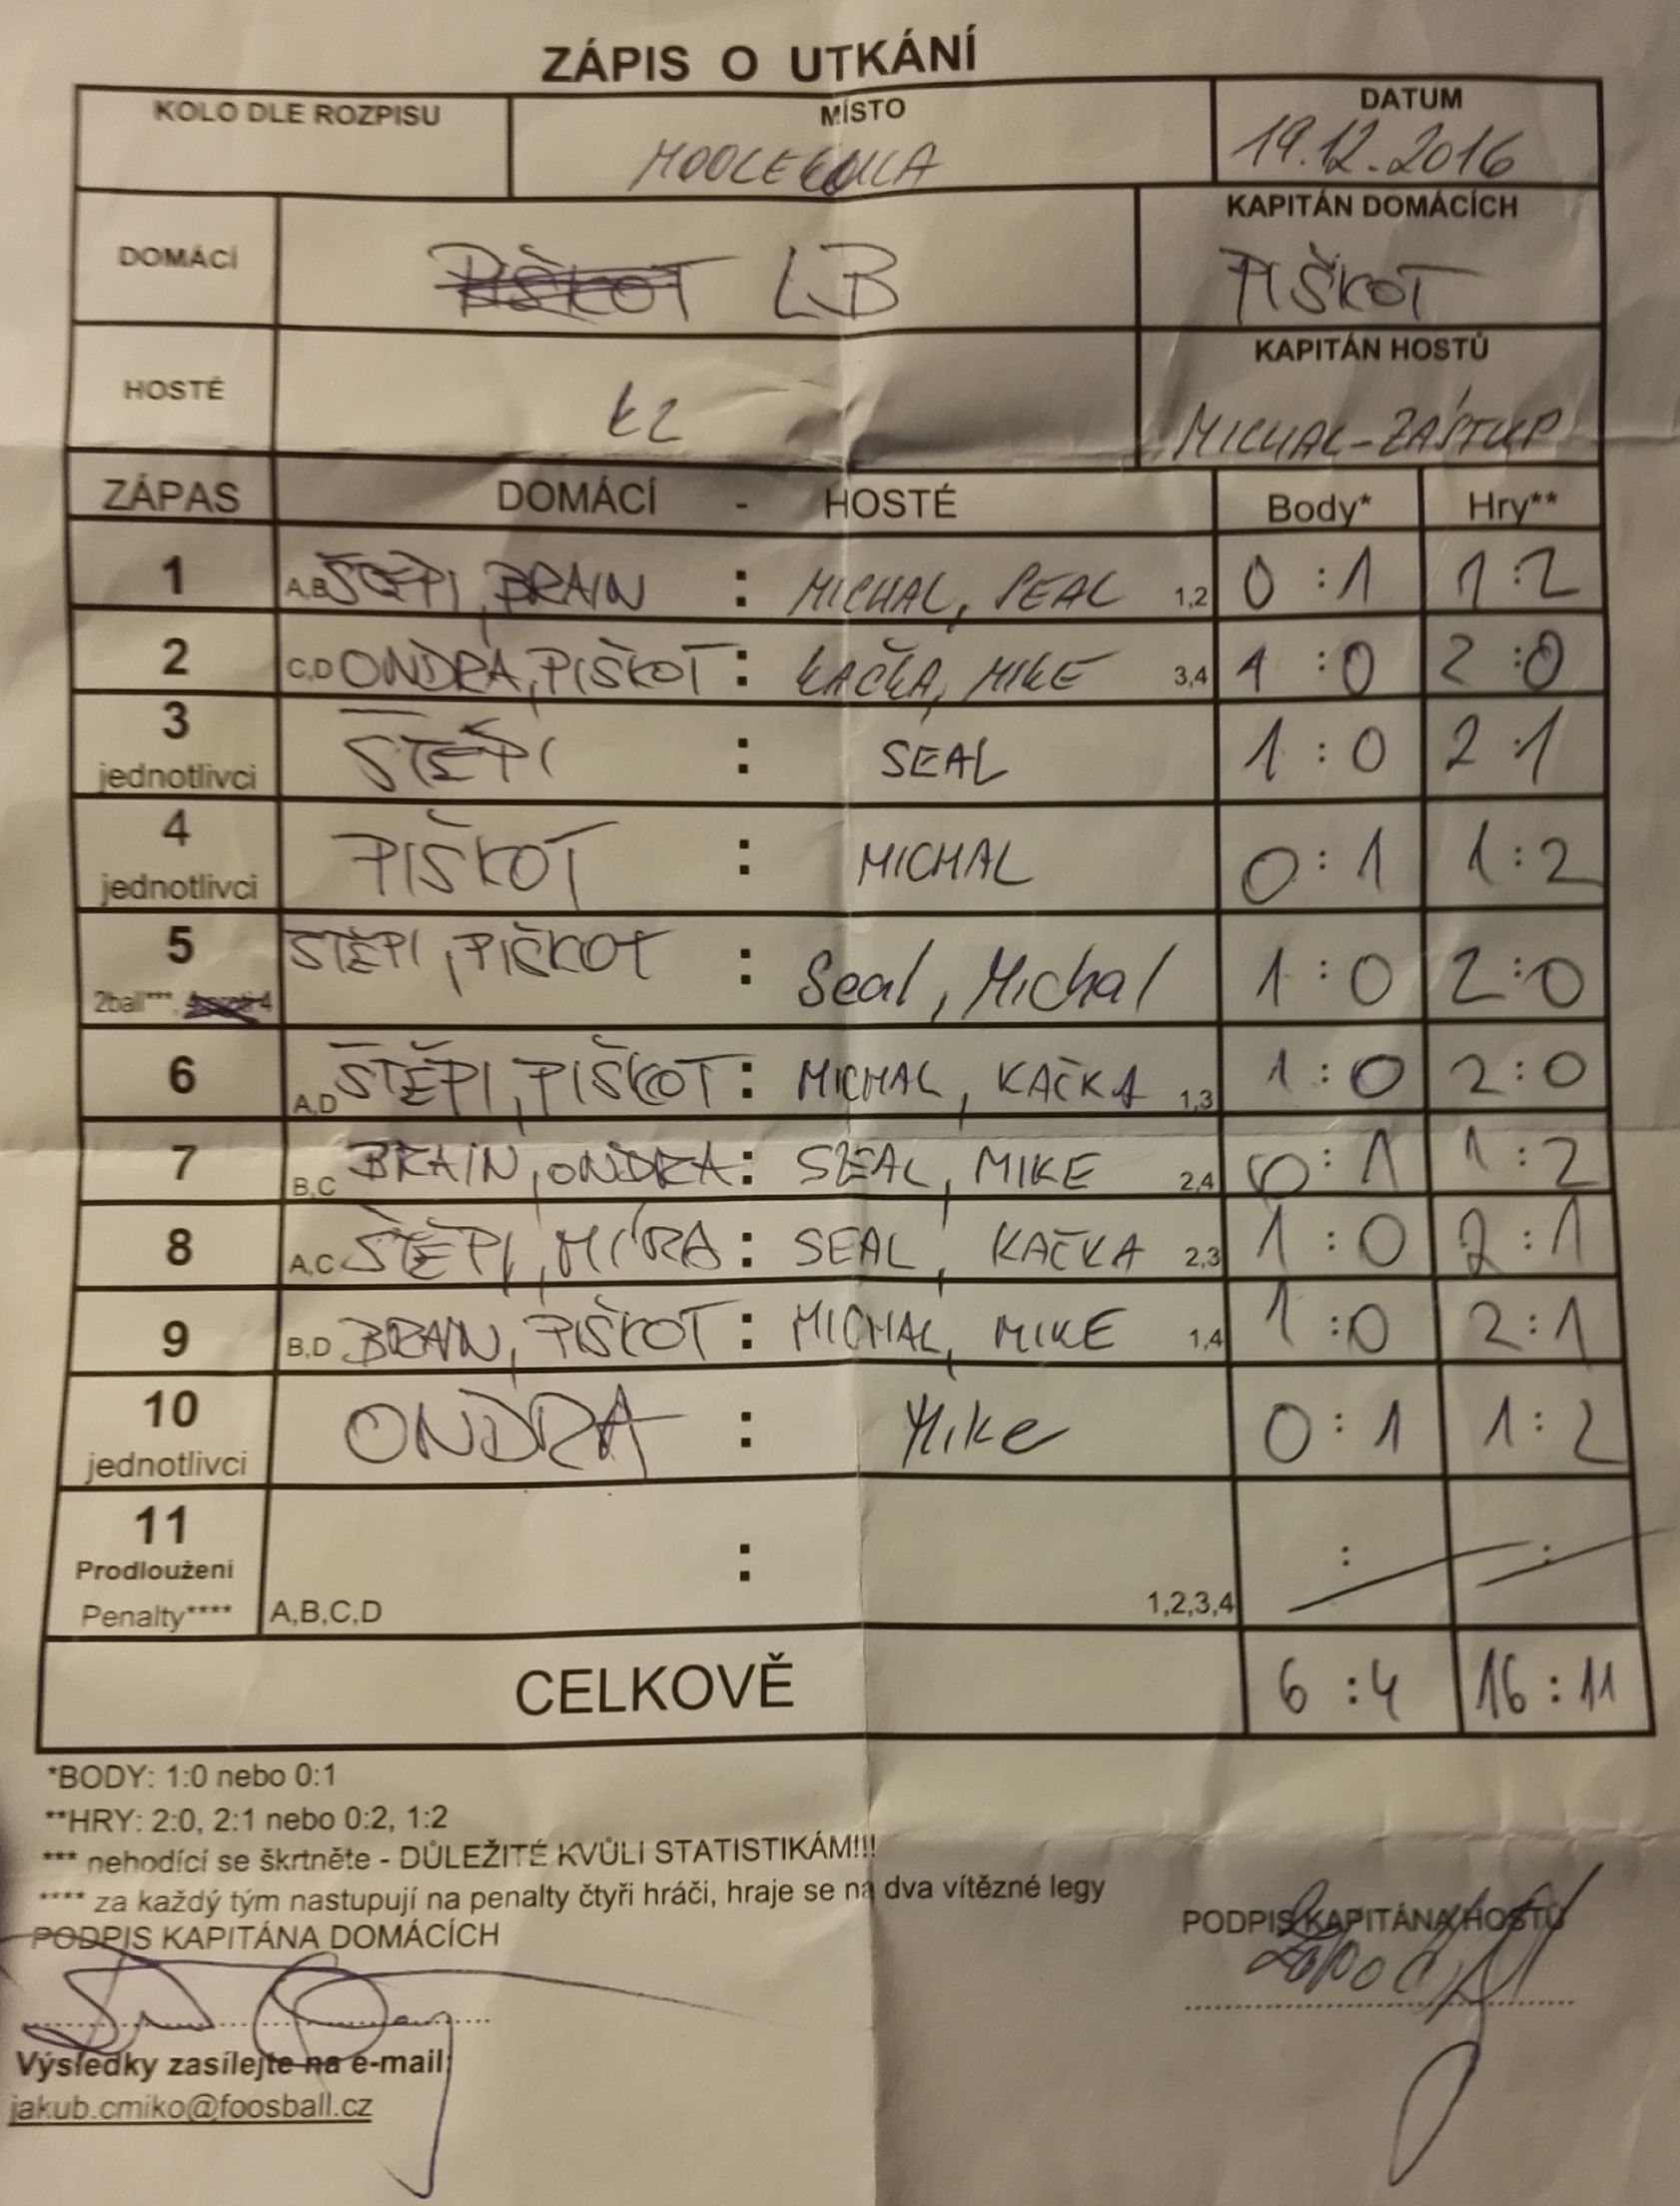 ZÁPIS O UTKÁNÍ
KOLO DLE ROZPISU MÍSTO DATUM
19.12.2016
DOMÁCÍ PIŠKOT LB KAPITÁN DOMÁCÍCH
PIŠKOT
HOSTÉ K2 KAPITÁN HOSTŮ
MICHAL-ZÁSTUP
ZÁPAS DOMÁCÍ - HOSTÉ Body* Hry**
1 A,B ŠTĚPI, BRAIN : MICHAL, SEAL 1,2 0 : 1 1 : 2
2 C,D ONDRA, PIŠKOT : KAČKA, MIKE 3,4 1 : 0 2 : 0
3 jednotlivci ŠTĚPI : SEAL 1 : 0 2 : 1
4 jednotlivci PIŠKOT : MICHAL 0 : 1 1 : 2
5 2ball***, ŠTĚPI, PIŠKOT : Seal, Michal 1 : 0 2 : 0
6 A,D ŠTĚPI, PIŠKOT : MICHAL, KAČKA 1,3 1 : 0 2 : 0
7 B,C BRAIN, ONDRA : SEAL, MIKE 2,4 0 : 1 1 : 2
8 A,C ŠTĚPI, MÍRA : SEAL, KAČKA 2,3 1 : 0 2 : 1
9 B,D BRAIN, PIŠKOT : MICHAL, MIKE 1,4 1 : 0 2 : 1
10 jednotlivci ONDRA : Mike 0 : 1 1 : 2
11 Prodloužení : : :
Penalty**** A,B,C,D 1,2,3,4
CELKOVĚ 6 : 4 16 : 11
*BODY: 1:0 nebo 0:1
**HRY: 2:0, 2:1 nebo 0:2, 1:2
*** nehodící se škrtněte - DŮLEŽITÉ KVŮLI STATISTIKÁM!!!
**** za každý tým nastupují na penalty čtyři hráči, hraje se na dva vítězné legy
PODPIS KAPITÁNA DOMÁCÍCH PODPIS KAPITÁNA HOSTŮ
Výsledky zasílejte na e-mail:
jakub.cmiko@foosball.cz